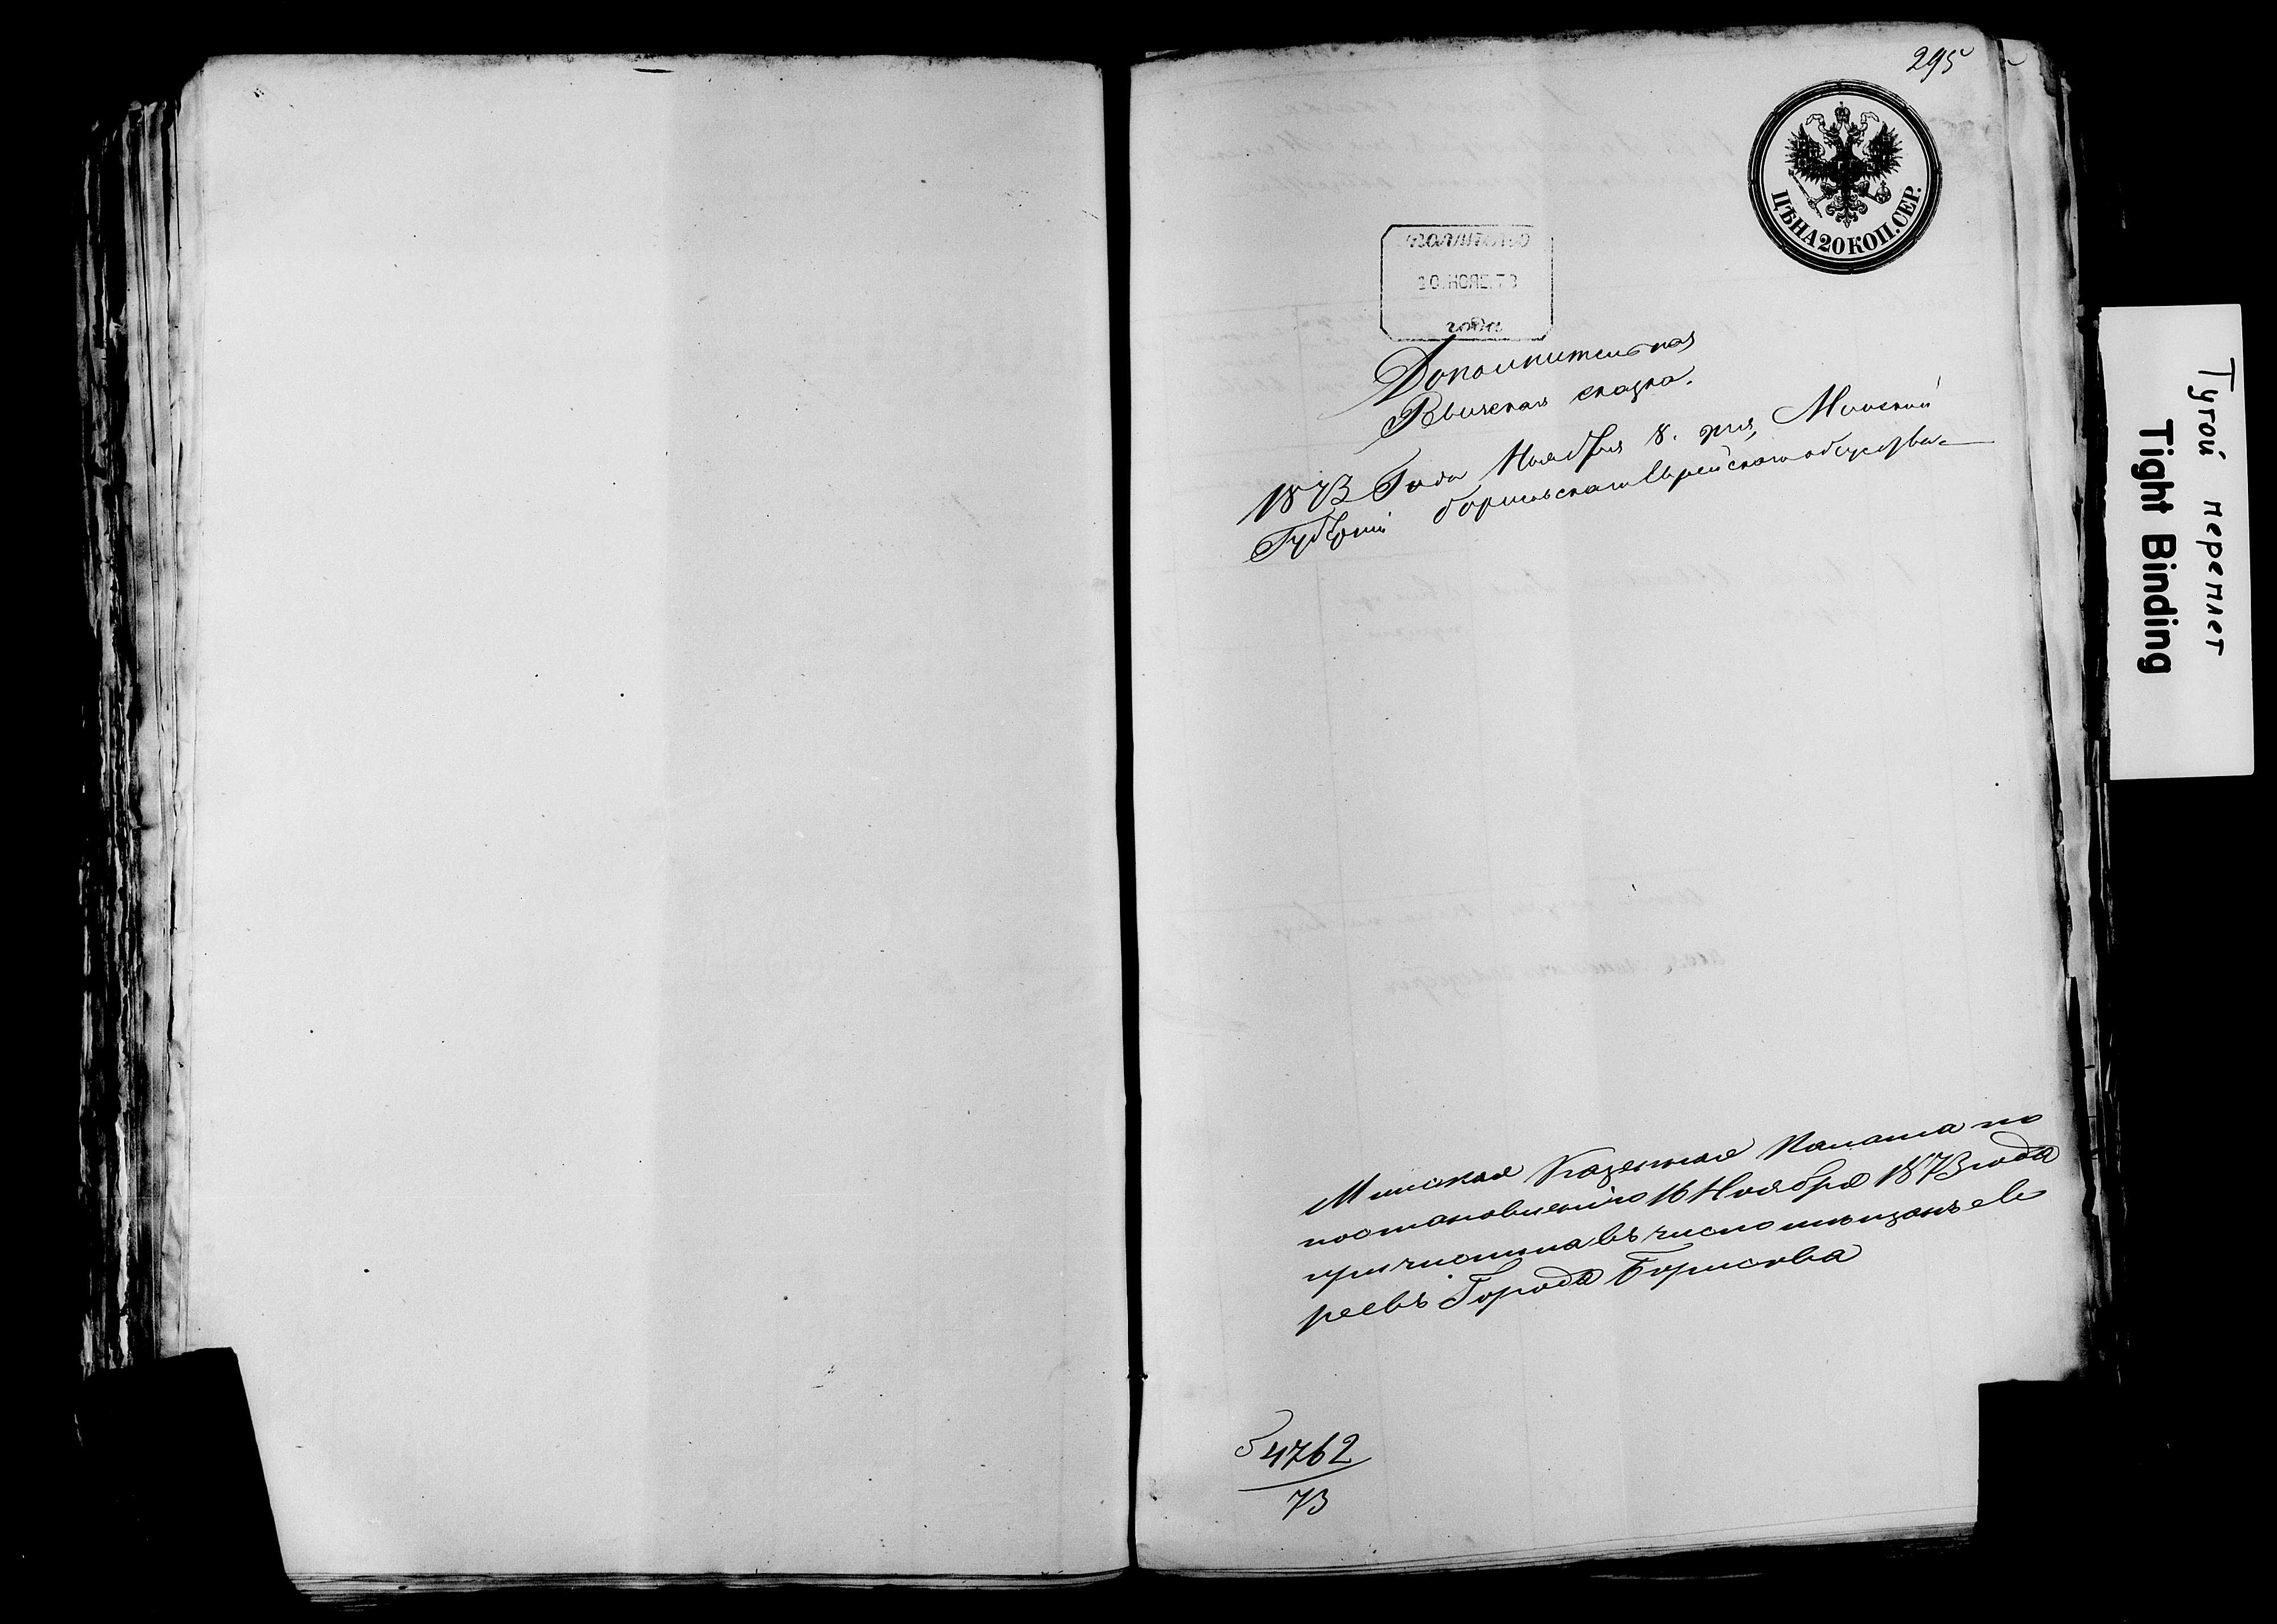 295
ЦѢНА 20 КОП. СЕР.
ПОЛУЧЕНО
20. НОЯБ. 73
года
Дополнительная
Ревизская сказка.
1873 Года Ноября 8. дня, Минской
Губерніи Борисовскаго Еврейскаго общества
Минская Казенная Палата по
постановленію 16 Ноября 1873 года
причислила въ число мѣщанъ ев
реевъ Города Борисова
4762
73
Тугой переплет
Tight Binding